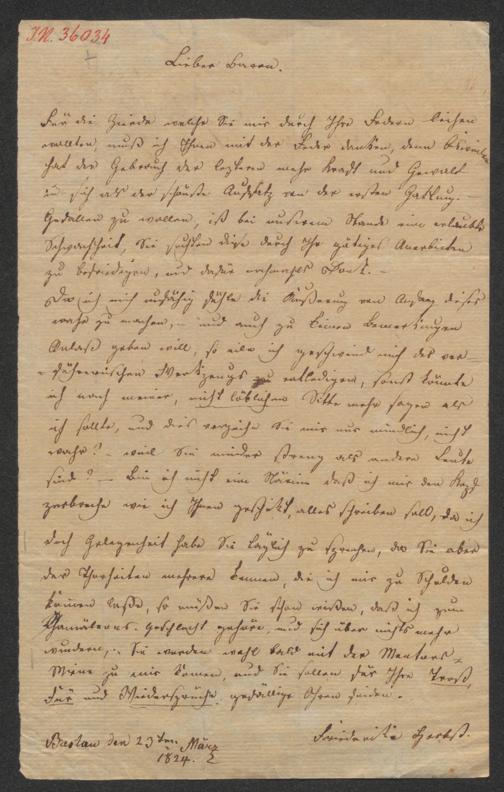 I.N. 36034
Lieber Baron.
Für die Zierde welche Sie mir durch Ihre Federn leihen
wollten, muß ich Ihnen mit der Feder danken, denn
hat der Gebrauch der leztern mehr Kraft und Gewalt
in sich als der schönste Aufsatz von der ersten Gattung. –
Gefallen zu wollen, ist bei unserem Stande eine erlaubte
Schwachheit, Sie suchten diese durch Ihr gütiges Anerbieten
zu befriedigen, und dafür nochmahls Dank. –
Da ich mich unfähig fühle die Äußerung von Anfang dieses
wahr zu machen, – und auch zu keinen Bemerkungen
Anlaß geben will, so eile ich geschwind mich des ver-
führerischen Werkzeugs zu entledigen, sonst könnte
ich nach meiner, nicht löblichen Sitte mehr sagen als
ich sollte, und dies verzeihe Sie mir nur mündlich, nicht
wahr? – weil Sie minder streng als andere Leute
sind? – Bin ich nicht eine Närrin daß ich mir den Kopf
zerbreche wie ich Ihnen geschickt, alles schreiben soll, da ich
doch Gelegenheit habe Sie täglich zu sprechen, da Sie aber
der Thorheiten mehrere kennen, die ich mir zu Schulden
kommen laße, so müßen Sie schon wißen, daß ich zum
Chamäleons-Geschlecht gehöre, und sich über nichts mehr
wundern, – Sie werden wohl bald mit der Mentors-
Miene zu mir kommen, und Sie sollen für Ihre
Für und Widersprüche, gefällige Ohren finden.
Breslau den 23ten März
1824.
Friederike Herbst.